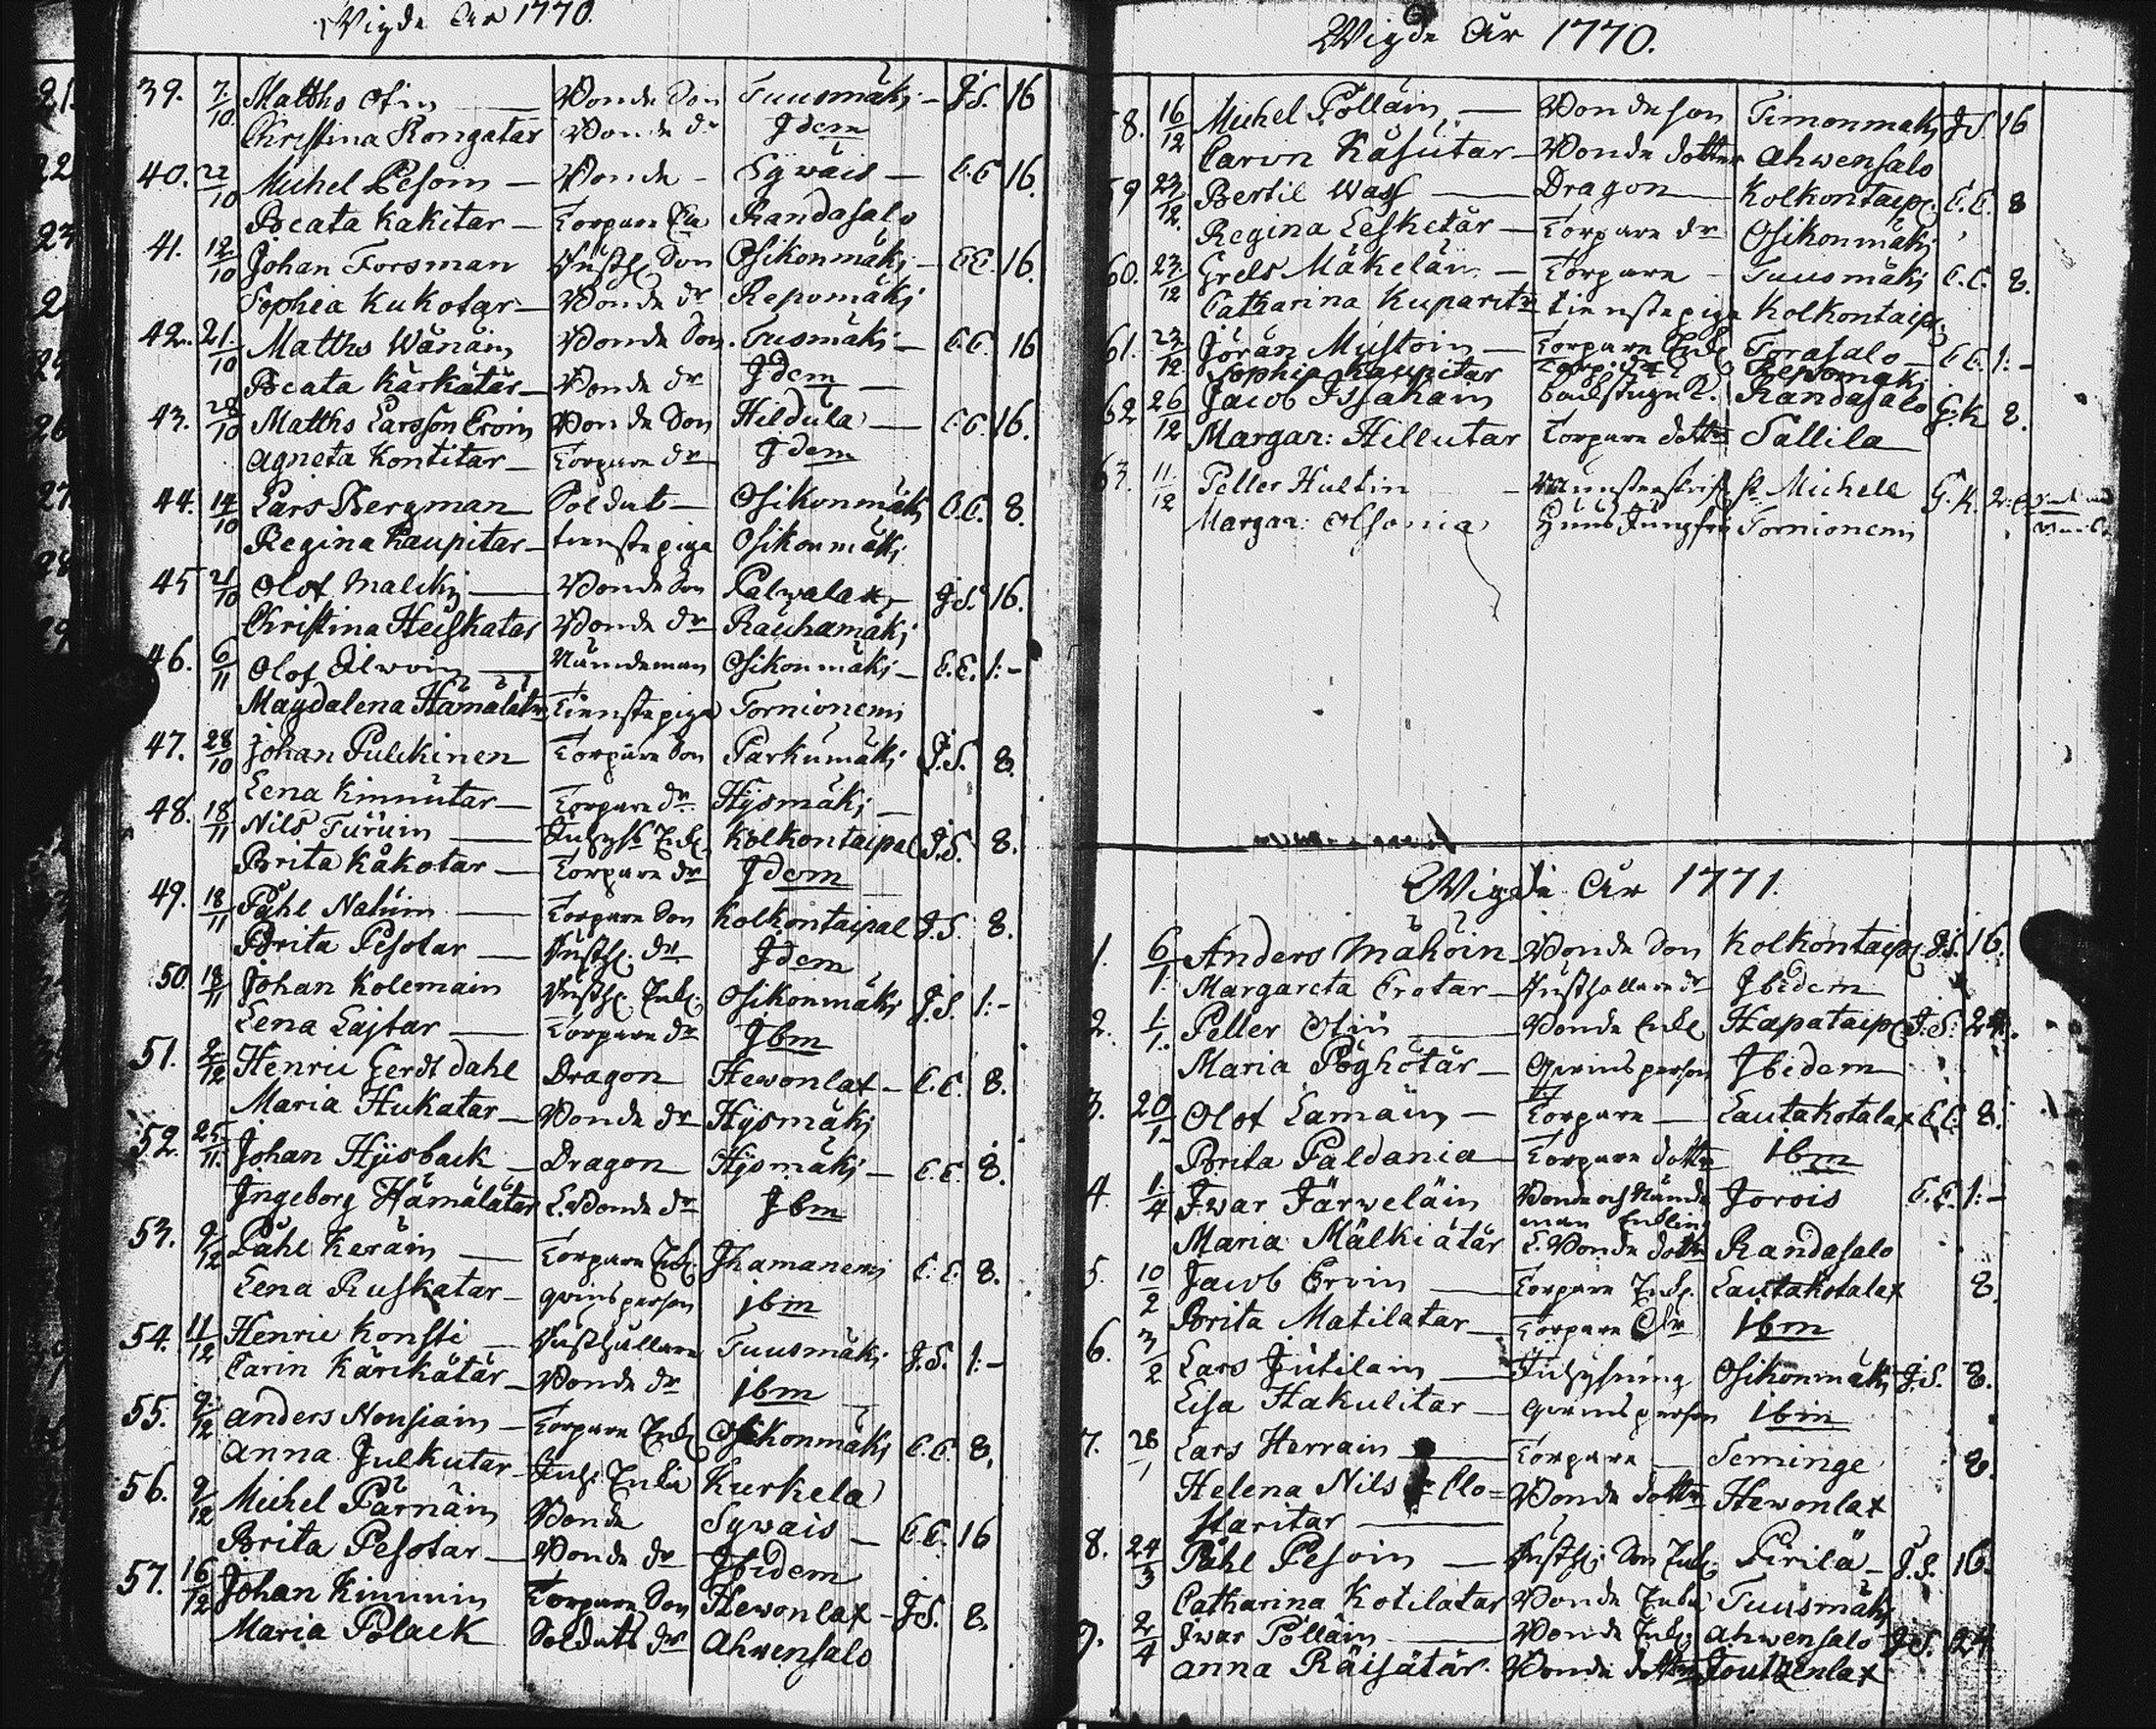 Wigde År 1770.
39. 7/10 Matths Otin — Bonde Son Tuusmäki — J.S. 16
Christina Rongatar Bonde dr Idem
40. 22/10 Michel Pesoin — Bonde — Sywäis — C.C. 16.
Beata Kakitar — Torpare Randasalo
41. 12/10 Johan Forsman Rusth. Son Osikonmäki — C.C. 16.
Sophia Kukotar — Bonde dr Repomäki
42. 21/10 Matths Wänäin Bonde Son. Tusmäki — C.C. 16
Beata Kärkätär — Bonde dr Idem —
43. 28/10 Matths Larsson Eroin Bonde Son Hildula — C.C. 16.
Agneta Kontitar — Torpare dr Idem
44. 14/10 Lars Bergman Soldat — Osikonmäki C.C. 8.
Regina Kaupitar — tienstepiga Osikonmäki
45 21/10 Olof Malckj — Bonde Son Palwalax — J.S. 16.
Christina Heiskatar Bonde dr Rauhamäki
46. 6/11 Olof — Nämdeman Osikonmäki — C.C. 1:-
Magdalena Hämäläter Tienstepiga Tornionemi
47. 28/10 Johan Pulckinen Torpare Son Parkumäki J.S. 8.
Lena Kinnutar — Torpare dr. Hysmäki —
48. 18/11 Nils Turuin — Inhyses Enk. Kolkontaipal J.S. 8.
Brita Kåkotar — Torpare dr Idem
49. 18/11 Påhl Nakuin — Torpare Son Kolkontaipal J.S. 8.
Brita Pesotar — Rusth. dr Idem
50. 18/11 Johan Kolemain Rusth. Enk. Osikonmäki J.S. 1:-
Lena Lajtar — Torpare dr Ibm
51. 2/12 Henric Gerdt dahl Dragon Hewonlax — C.C. 8.
Maria Hukatar — Bonde dr Hysmäki
52. 25/11. Johan Hysback — Dragon Hysmäki — C.C. 8.
Ingeborg Hämälätär L. Bonde dr Ibm
53. 9/12 Påhl Keräin — Torpare Enk. Ihamanemi C.C. 8.
Lena Ruskatar — qvinsperson ibm
54. 11/12 Henric Konsti — Rusthållare Tuusmäki J.S. 1:-
Carin Kärckätär — Bonde dr ibm
55. 9/12 Anders Nousiain — Torpare Enk. Osikonmäki C.C. 8.
Anna Julkutar — Inh. Enka Kurkela
56. 9/12 Michel Pärnäin Bonde Sywais — C.C. 16
Brita Pesotar — Bonde dr Ibidem
57. 16/12 Johan Kinnuin Torpare Son Hewonlax — J.S. 8.
Maria Polack Soldats dr Ahwensalo
Wigde År 1770.
8. 16/12 Michel Pölläin — Bonde son Timonmäki J.S. 16
Carin Käsütar — Bonde dotter Ahwensalo
59 23/12. Bertil Wass — Dragon Kolkontaip. C.C. 8
Regina Lesketär — Torpare dr Osikonmäki
60. 23/12 Grels Mäkeläin — Torpare — Tuusmäki C.C. 8.
Catharina Kuparitr tienstepiga Kolkontaip.
61. 23/12. Jöran Mustoin — Torpare Enk. Torasalo — C.C. 1:-
Sophia Kaupitar Repomäki
62 26/12 Jacob Issakain backstugu K. Randasalo G.K 8.
Margar: Hillutar Torpare dotter Sallila
63. 11/12 Petter Hultin — St. Michell G.K. 2:
Margar: Olsonia Huus Jungfru Tornionemi
Wigde År 1771.
1. 6/1. Anders Mähöin — Bonde Son Kolkontaip. J.S. 16.
Margareta Erotar — Rusthollare dr Ibidem
2. 1/1. Petter Otin — Bonde Enk. Hapataip. J.S. 24.
Maria Pöyhötär — Qwinsperson Ibidem
3. 20/1. Olof Lamain — Torpare — Lautakotalax C.C. 8.
Brita Paldania — Torpare dotter ibm
4. 1/4 Iwar Järweläin Bonde och Nämde Jorois C.C. 1:-
man Enkling
Maria Mälkiätär L. Bonde dotter Randasalo
5. 10/2 Jacob Eroin — Torpare Enk. Lautakotalax 8.
Brita Matilatar — Torpare dr ibm
6. 3/2 Lars Jutilain — Inhysning Osikonmäki J.S. 8.
Lisa Hakulitar — Qwinsperson ibm
7. 28/1 Lars Herrain — Torpare — Seminge 8.
Helena Nils Bonde dotter Hewonlax
staritar —
8. 24/3 Påhl Pesoin — Rusth. Son Enk. Pirilä — J.S. 16.
Catharina Kotilatar Bonde Enka Tuusmäki
9. 2/4 Iwar Pölläin — Bonde Enk. Ahwensalo J.S. 24
Anna Räisätär. Bonde dotter Joutzenlax